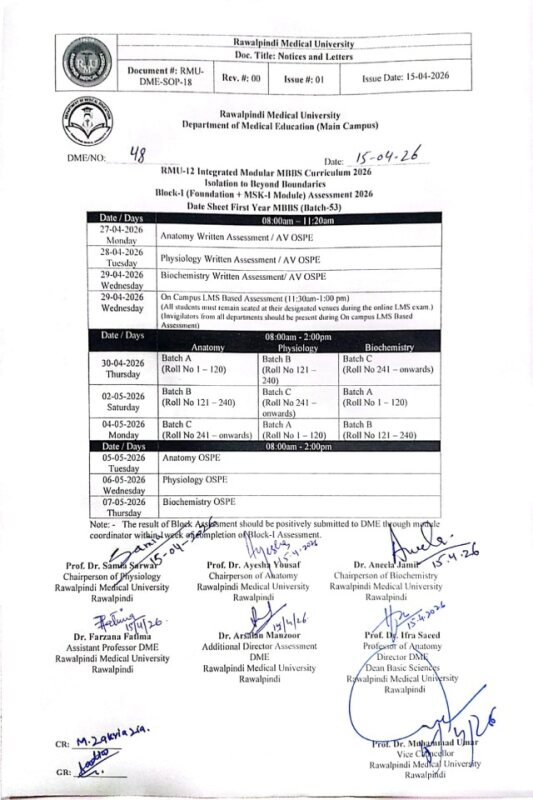 Rawalpindi Medical University
Doc. Title: Notices and Letters
Document #: RMU-DME-SOP-18
Rev. #: 00
Issue #: 01
Issue Date: 15-04-2026
RMU
Rawalpindi Medical University
Department of Medical Education (Main Campus)
DME/NO: 48
Date: 15-04-26
RMU-12 Integrated Modular MBBS Curriculum 2026
Isolation to Beyond Boundaries
Block-I (Foundation + MSK-I Module) Assessment 2026
Date Sheet First Year MBBS (Batch-53)
Date / Days 08:00am – 11:20am
27-04-2026 Monday Anatomy Written Assessment / AV OSPE
28-04-2026 Tuesday Physiology Written Assessment / AV OSPE
29-04-2026 Wednesday Biochemistry Written Assessment/ AV OSPE
29-04-2026 Wednesday On Campus LMS Based Assessment (11:30am-1:00 pm)
(All students must remain seated at their designated venues during the online LMS exam.)
(Invigilators from all departments should be present during On campus LMS Based Assessment)
Date / Days 08:00am - 2:00pm
Anatomy Physiology Biochemistry
30-04-2026 Thursday Batch A (Roll No 1 – 120) Batch B (Roll No 121 – 240) Batch C (Roll No 241 – onwards)
02-05-2026 Saturday Batch B (Roll No 121 – 240) Batch C (Roll No 241 – onwards) Batch A (Roll No 1 – 120)
04-05-2026 Monday Batch C (Roll No 241 – onwards) Batch A (Roll No 1 – 120) Batch B (Roll No 121 – 240)
Date / Days 08:00am - 2:00pm
05-05-2026 Tuesday Anatomy OSPE
06-05-2026 Wednesday Physiology OSPE
07-05-2026 Thursday Biochemistry OSPE
Note: - The result of Block Assessment should be positively submitted to DME through module
coordinator within 1 week of completion of Block-I Assessment.
Samia 15-04-2026
Ayesha 15.4.2026
Aneela. 15.4.26
Prof. Dr. Samia Sarwar
Chairperson of Physiology
Rawalpindi Medical University
Rawalpindi
Prof. Dr. Ayesha Yousaf
Chairperson of Anatomy
Rawalpindi Medical University
Rawalpindi
Dr. Aneela Jamil
Chairperson of Biochemistry
Rawalpindi Medical University
Rawalpindi
15/4/26.
15/4/26
15.4.2026
Dr. Farzana Fatima
Assistant Professor DME
Rawalpindi Medical University
Rawalpindi
Dr. Arsalan Manzoor
Additional Director Assessment
DME
Rawalpindi Medical University
Rawalpindi
Prof. Dr. Ifra Saeed
Professor of Anatomy
Director DME
Dean Basic Sciences
Rawalpindi Medical University
Rawalpindi
CR: M. Zakria
GR:
Prof. Dr. Muhammad Umar
Vice Chancellor
Rawalpindi Medical University
Rawalpindi